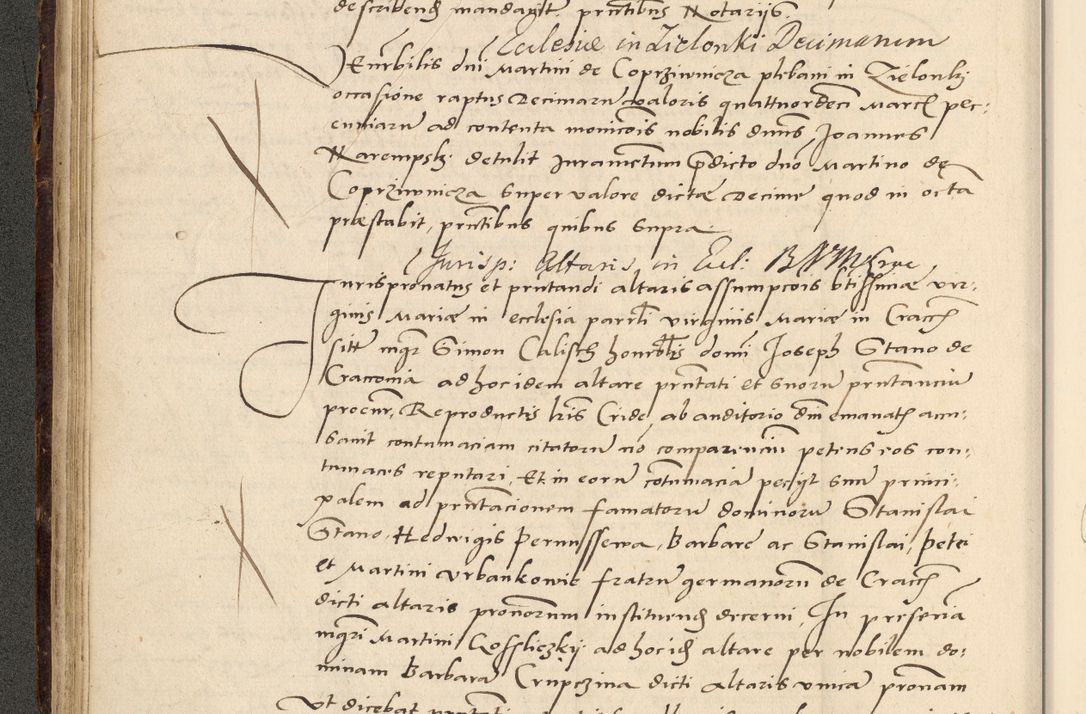 describend mandavit. prntibus Notariis.
Ecclesiæ in Zielonki Decimarum
Venrbilis dni Martini de Coprziwnicza plebani in Zielonki
occasione raptus Decimaru valoris quattuordeci March pec:
cuniaru ad contenta monicois nobilis duus Joannes
Narempski detulit Juramentum p̃dicto dno Martino de
Coprziwnicza super valore dictæ Decime quod in octa
præstabit, prntibus quibus supra.
Jurisp: Altaris in Eccl: BVMariae
Jurispronatus et prntandi altaris assumpcois btissimæ vir:
ginis Mariæ in ecclesia parrli virginis Mariæ in Cracch
sitt mgr Simon Calisch honrblis domi Joseph Stano de
Cracovia ad hoc idem altare prntati et suoru prntanciu
procur, Reproductis lris Cride ab auditorio dni emanath accu:
savit contumaciam citatoru no comparenciu petens eos con:
tumaces reputari, Et in eoru cotumacia peciyt suu princi:
palem ad prntacionem famatoru dominoru Stanislai
Stano, Hedwigis Pernussewa, Barbare ac Stanislai, Petri
et Martini Urbankowie fratru germanoru de Cracch
dicti altaris pronorum instituend decerni, In presencia
mgri Martini Kossliczkij ad hoc id altare per nobilem do:
minam Barbara Crupczina dicti altaris unica pronam
Ut dicebat prntati